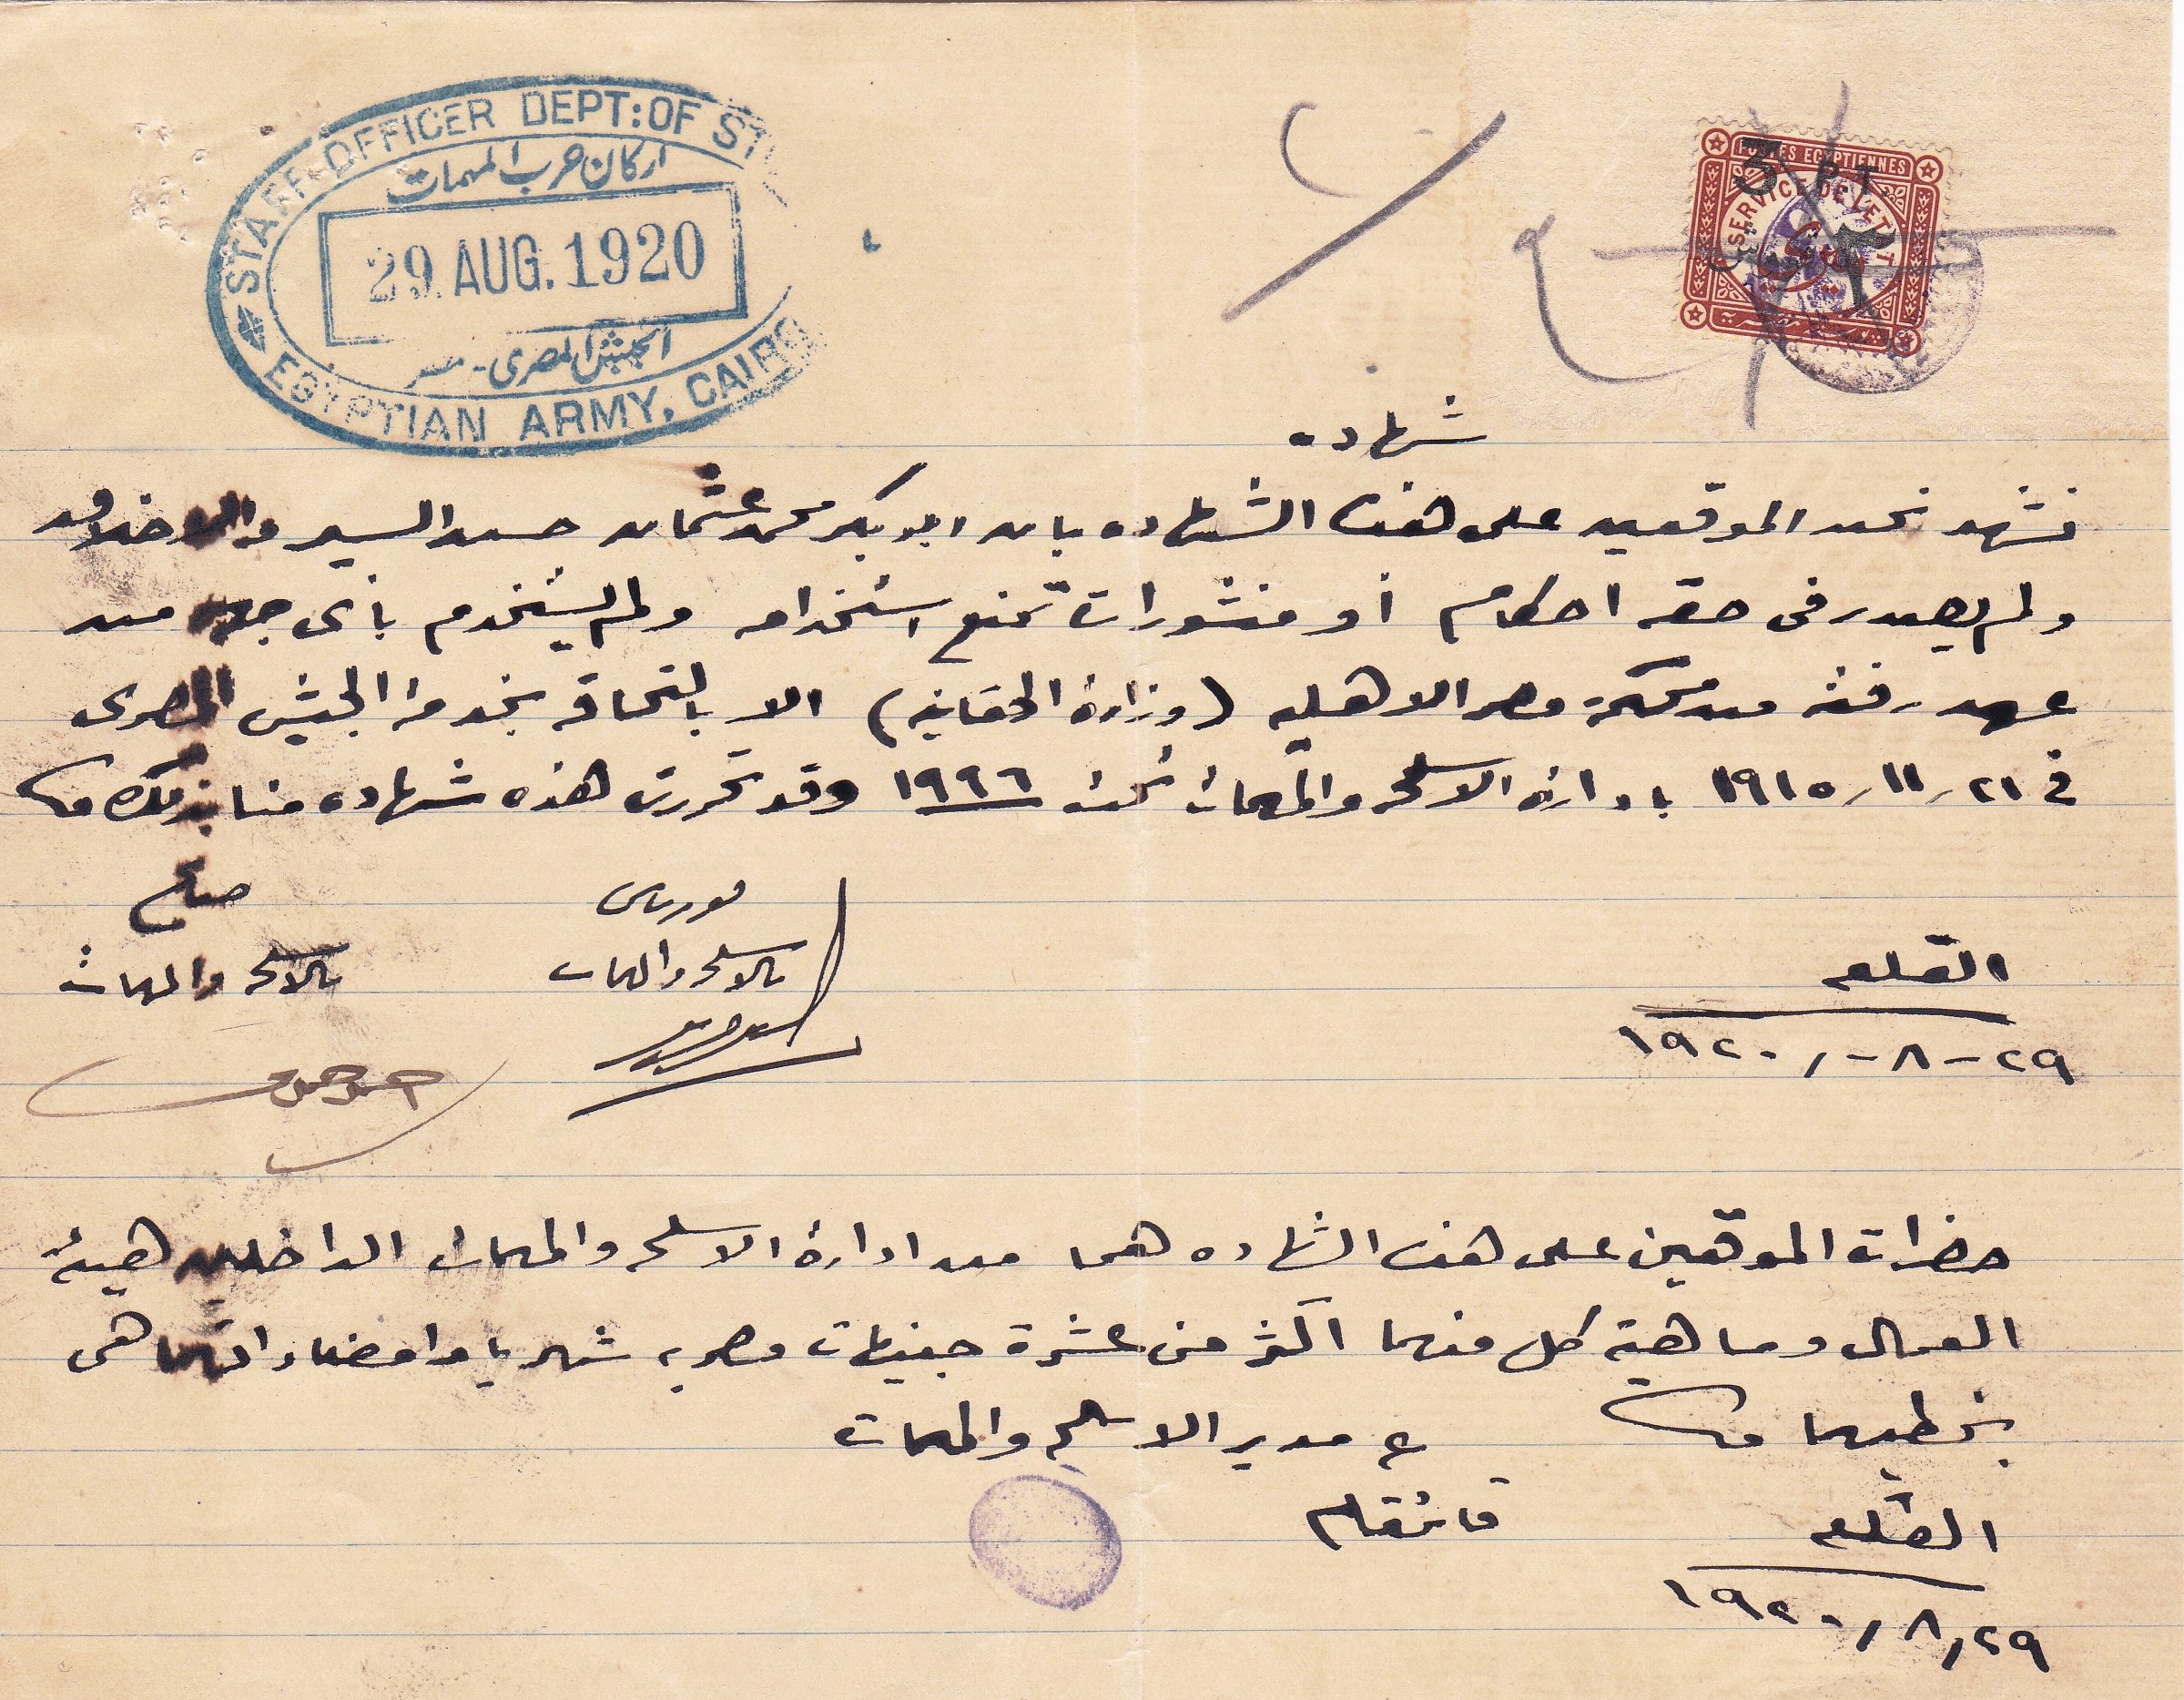 STAFF OFFICER DEPT: OF ST
اركان حرب المهمات
29 AUG. 1920
الجيش المصرى - مصر
EGYPTIAN ARMY, CAIRO
POSTES EGYPTIENNES
3 P.T.
SERVICE DE L'ETAT
شهاده
نشهد نحن الموقعين على هذه الشهاده بان ابو بكر محمد عثمان حسن السير والاخلاق
ولم يصدر فى حقه احكام أو منشورات تمنع استخدامه ولم يستخدم بأى جهه من
عهد رفته من محكمة مصر الاهليه (وزارة الحقانيه) الا بالتحاقه بخدمة الجيش المصرى
فى ٢١/١١/١٩١٥ بادارة الاسلحه والمهمات تحت ١٩٩٦ وقد تحررت هذه شهاده منا بذلك
صانع
بالاسلحه والمهمات
بالاسلحه والمهمات
القلعه
٢٩-٨-١٩٢٠
حضرات الموقعين على هذه الشهاده هما من ادارة الاسلحه والمهمات الداخلين هيئة
العمال وماهية كل منهما اكثر من عشرة جنيهات مصريه شهريا وامضاءاتهما هى
بخطيهما
ع مدير الاسلحه والمهمات
قائمقام
القلعه
٢٩/٨/١٩٢٠